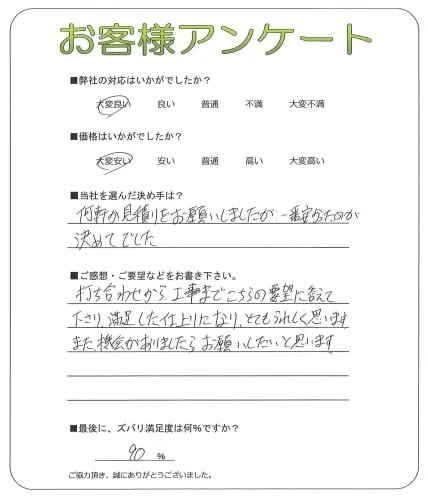 お客様アンケート
■弊社の対応はいかがでしたか？
大変良い 良い 普通 不満 大変不満
■価格はいかがでしたか？
大変安い 安い 普通 高い 大変高い
■当社を選んだ決め手は？
何軒か見積りをお願いしましたが、一番安かったのが
決めてでした
■ご感想・ご要望などをお書き下さい。
打ち合わせから、工事までこちらの要望に答えて
下さり、満足した仕上りになり、とてもうれしく思います
また、機会がありましたらお願いしたいと思います
■最後に、ズバリ満足度は何％ですか？
90 ％
ご協力頂き、誠にありがとうございました。